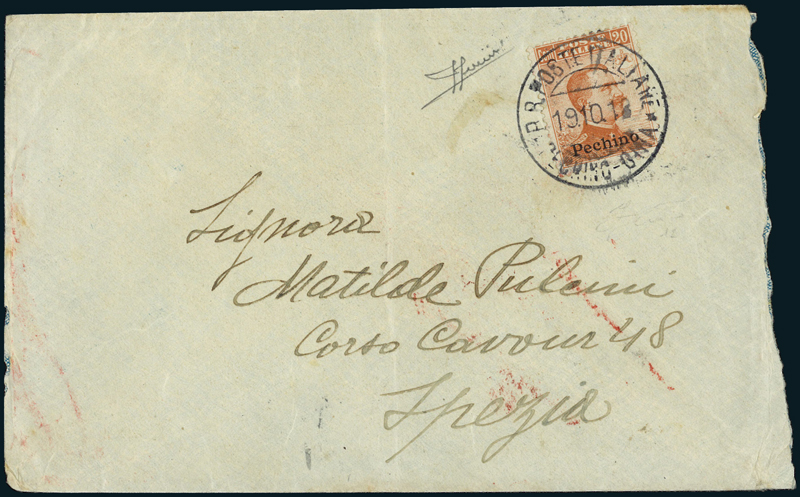 20
R.R. POSTE ITALIANE
19.10.1
Pechino
PECHINO-CINA
Signora
Matilde Pulcini
Corso Cavour 48
Spezia